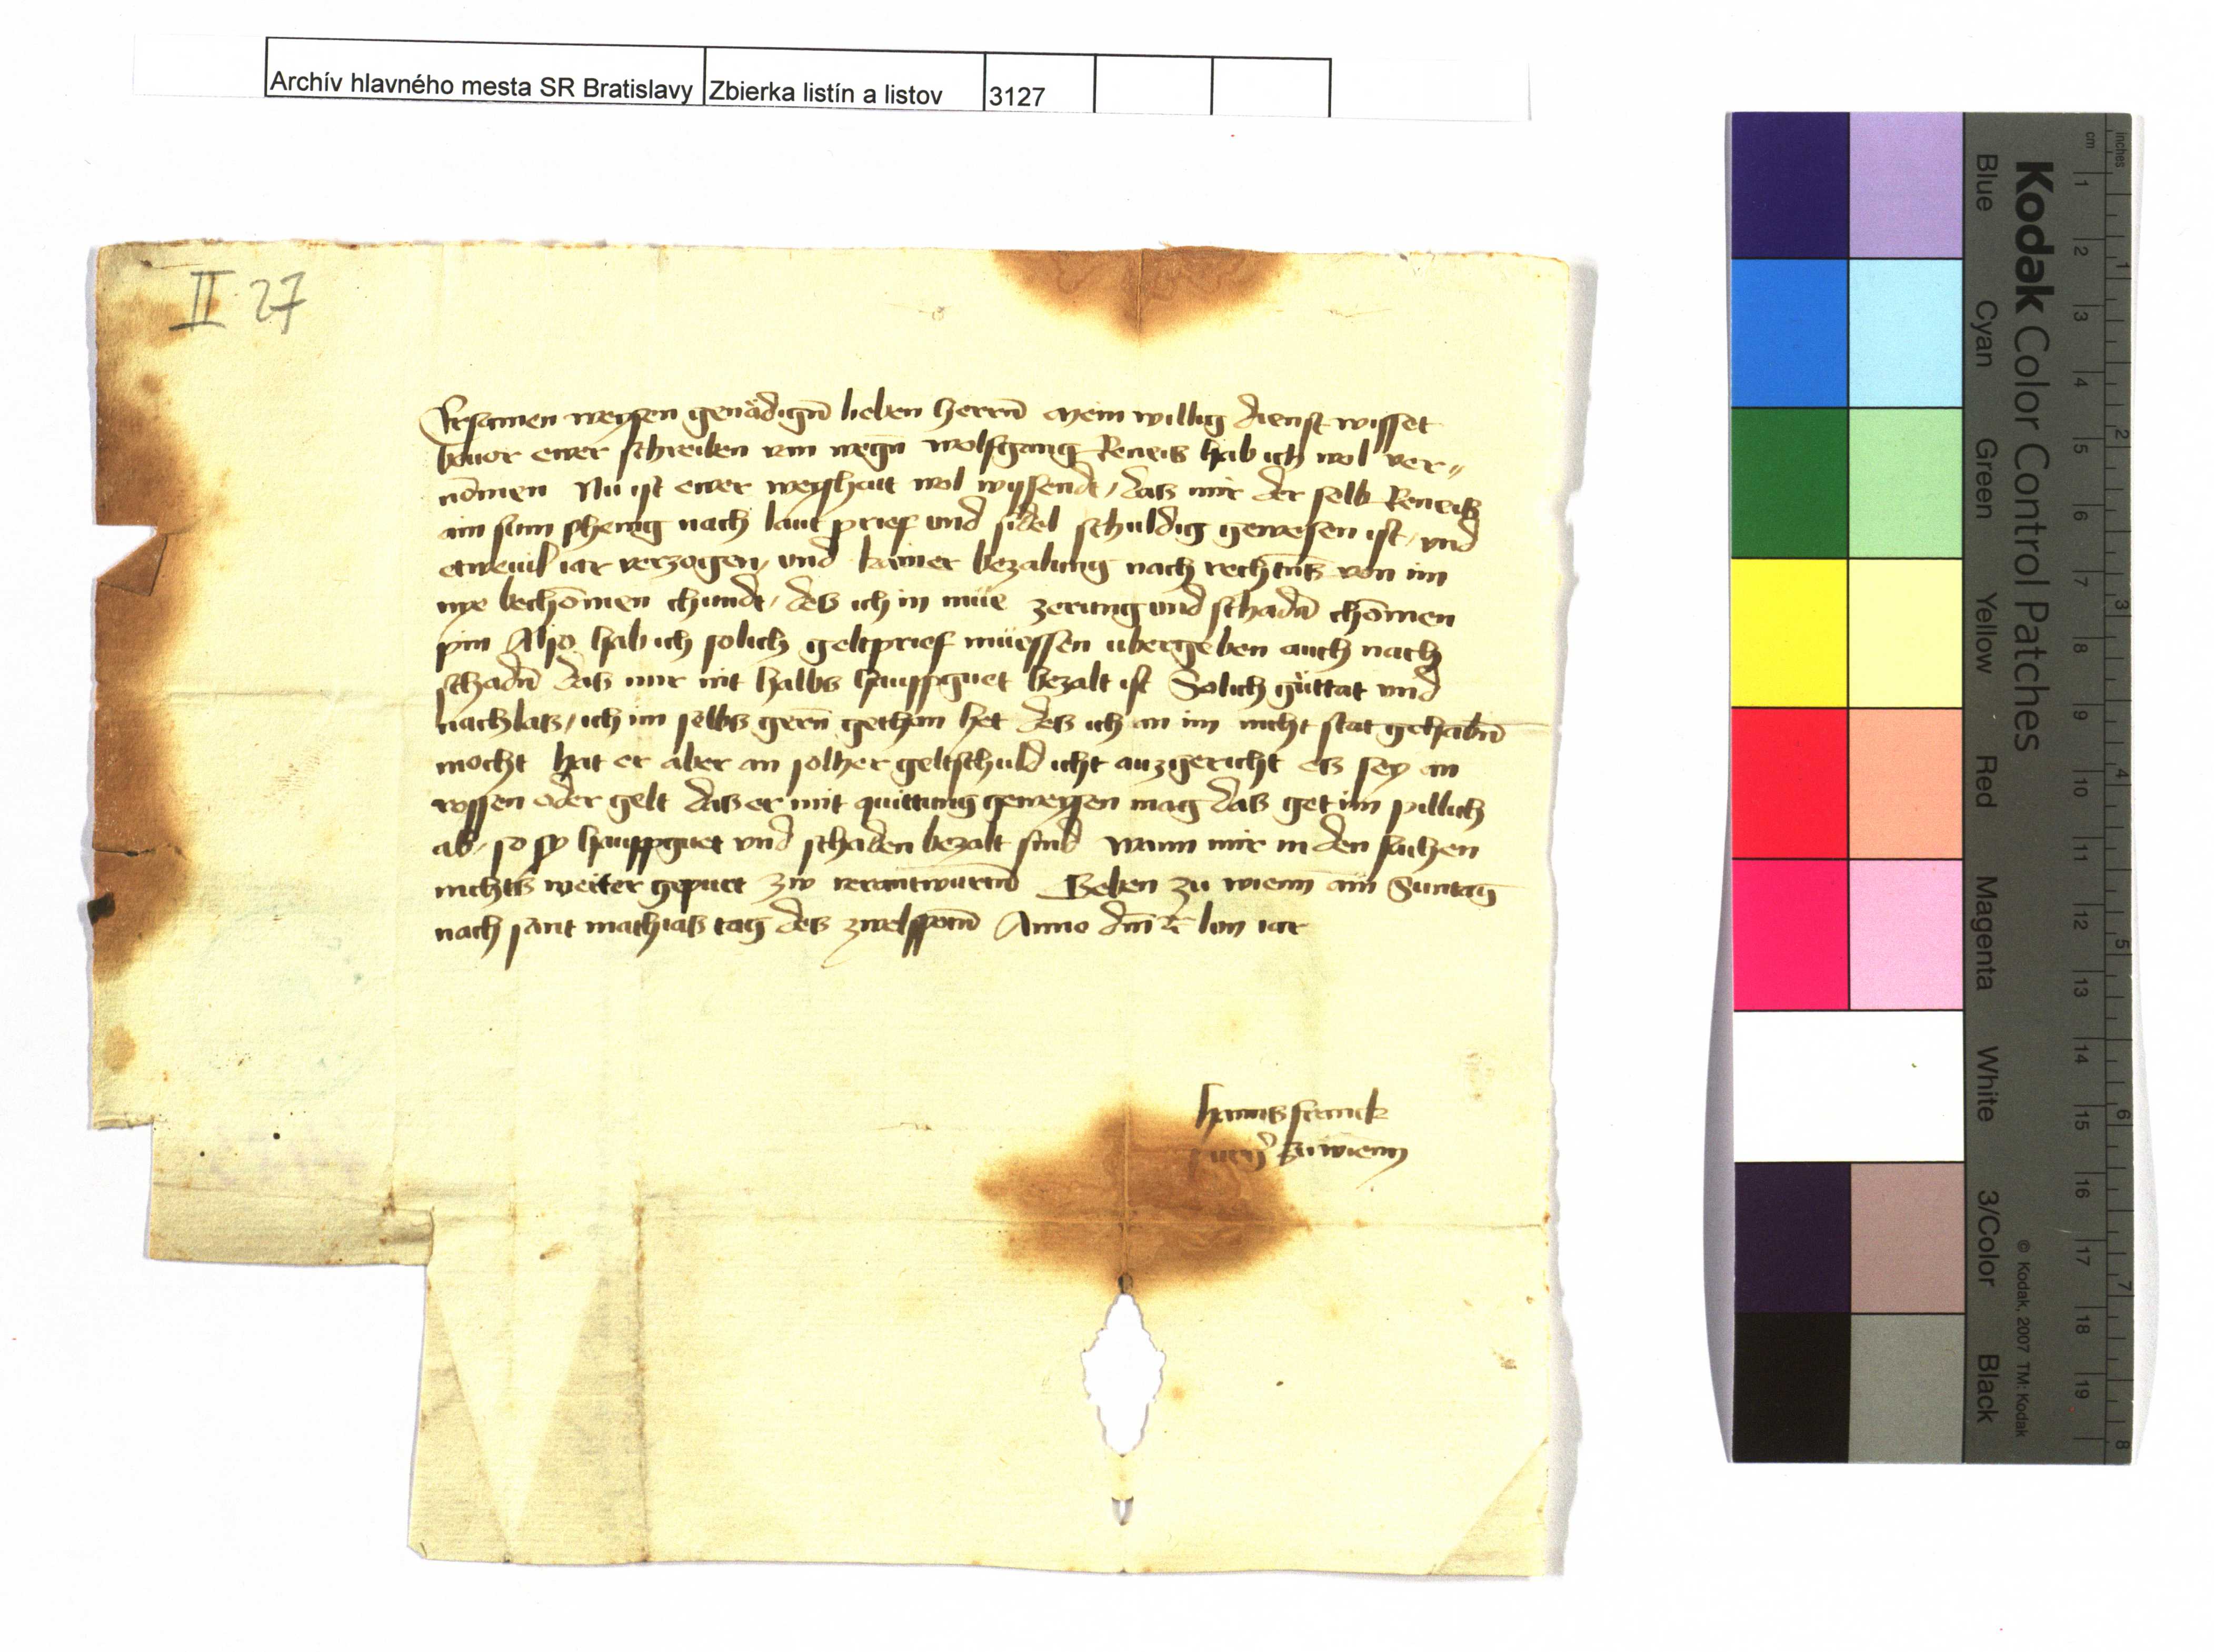 Archív hlavného mesta SR Bratislavy Zbierka listín a listov 3127
II 27
Ersamen weysen genädign lieben herrn mein willig dienst wisset
beuor ewer schreiben von wegn wolfgang Reneis hab ich wol ver-
nomen Nu ist ewer weyshait wol wyssendt, das mir der selb Reneis
ain sum phenig nach laut prief und sidel schuldig gewesen ist, vnd
etwevil iar verzogen, vnd kainer bezalung nach rechtens von im
nye bechomen chundt, des ich in müe zerung vnd schadn chomen
pin Also hab ich solich geltprief müessen ubergeben auch nach
schadn das mir nit halbs haupguet bezalt ist Solich guttat vnd
nachlas, ich im selbs gern gethan het des ich an im nicht stat gehabn
mocht hat er aber an solher geltschuld icht auzgericht es sey an
rossen oder gelt das er mit quittung geweysen mag das get im pillich
ab, so sy haupguet vnd schaden bezalt sind wann mir in den sachen
nichts weiter gepuert zw verantwurtn Geben zu wienn am Suntag
nach sant mathias tag des zwelfpotn Anno dm etc lvii iar
hanns franck
zu wienn
Kodak Color Control Patches
Blue Cyan Green Yellow Red Magenta White 3/Color Black
© Kodak, 2007 TM: Kodak
inches 1 2 3 4 5 6 7 8
cm 1 2 3 4 5 6 7 8 9 10 11 12 13 14 15 16 17 18 19